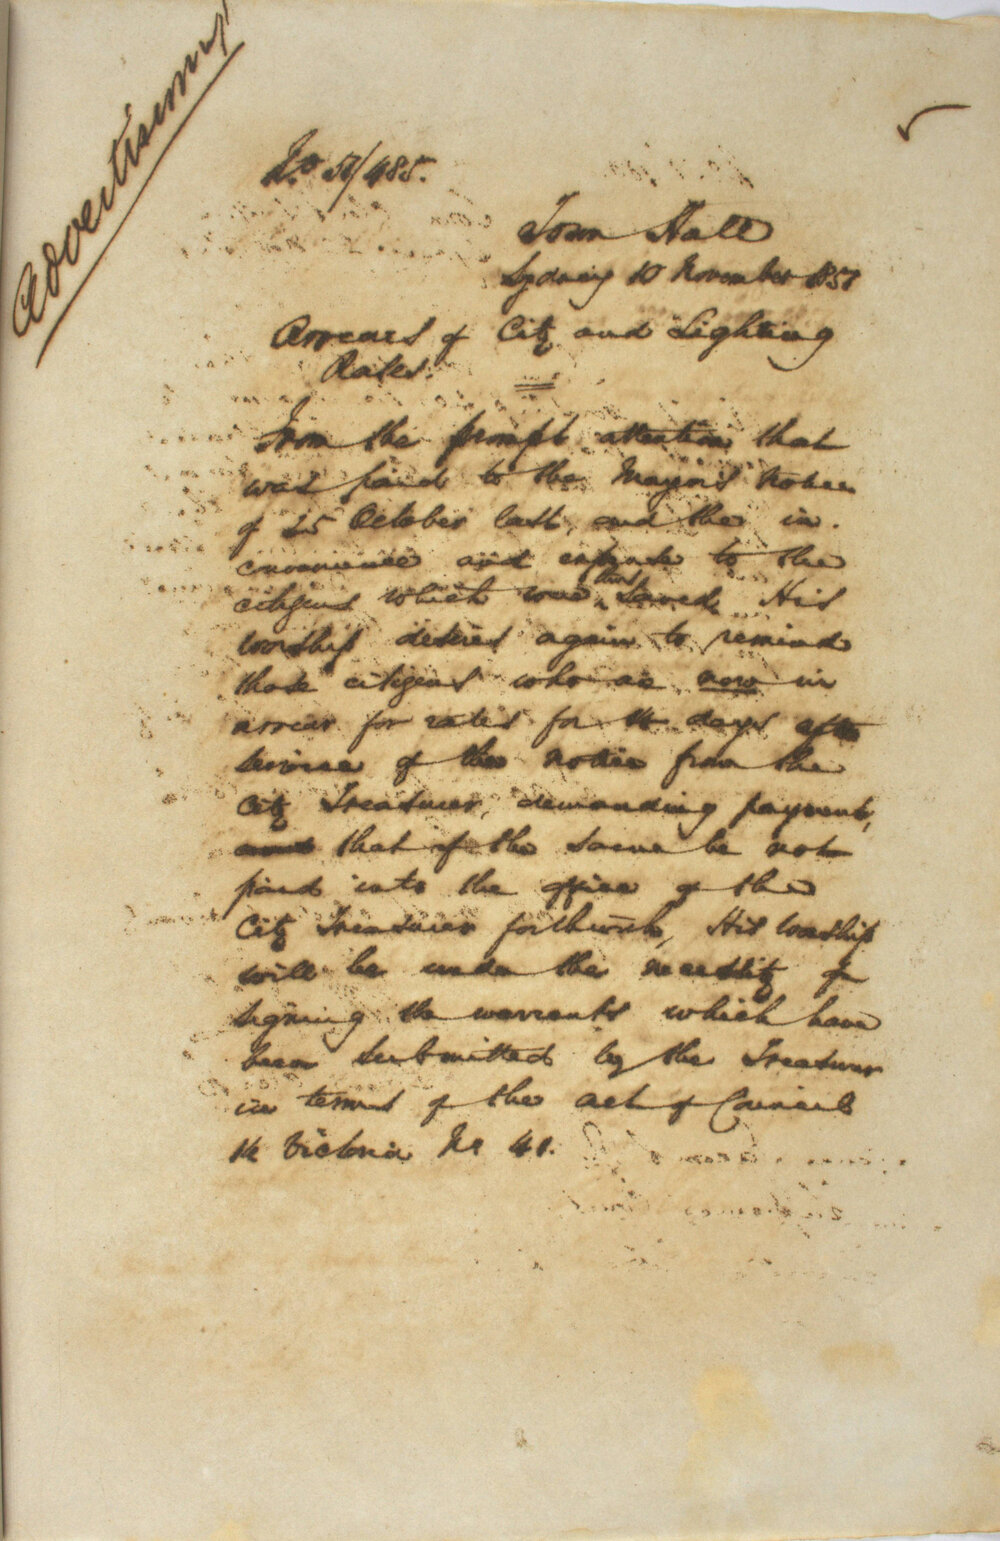 Advertisemt
No 51/485.
Town Hall
Sydney 10 November 1851
Arrears of City and Lighting
Rates.
From the prompt attention that
was paid to the Mayor's Notice
of 25 October last, and the in-
convenience and expense to the
citizens which was thus saved, His
Worship desires again to remind
those citizens who are now in
arrear for rates for 14 days after
service of the notice from the
City Treasurer, demanding payment,
and that if the same be not
paid into the office of the
City Treasurer forthwith, His Worship
will be under the necessity of
signing the warrants which have
been submitted by the Treasurer
in terms of the act of Council
14 Victoria No 41.